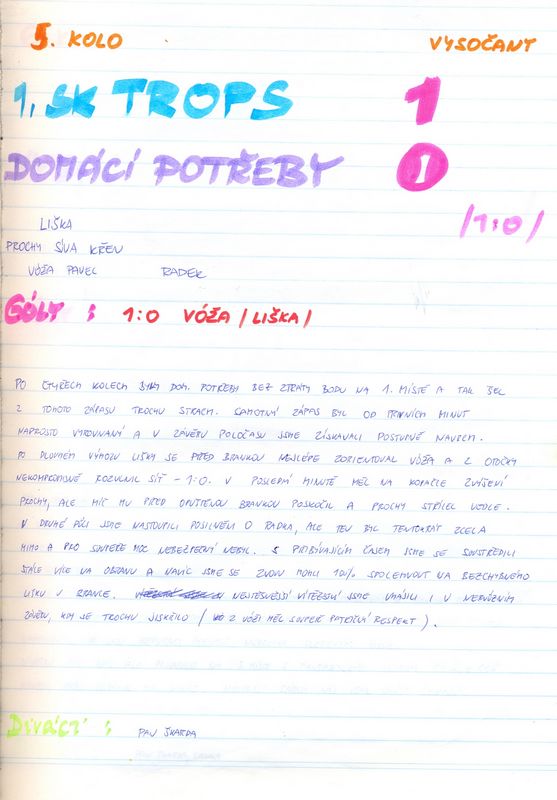 5. KOLO VYSOČANY
1. SK TROPS 1
DOMÁCÍ POTŘEBY 0
/1:0/
LIŠKA
PROCHY SÍVA KŘEN
VÓŽA PAVEL RADEK
GÓLY : 1:0 VÓŽA /LIŠKA/
PO ČTYŘECH KOLECH BYLY DOM. POTŘEBY BEZ ZTRÁTY BODU NA 1. MÍSTĚ A TAK ŠEL
Z TOHOTO ZÁPASU TROCHU STRACH. SAMOTNÝ ZÁPAS BYL OD PRVNÍCH MINUT
NAPROSTO VYROVNANÝ A V ZÁVĚRU POLOČASU JSME ZÍSKÁVALI POSTUPNĚ NAVRCH.
PO DLOUHÉM VÝHOZU LIŠKY SE PŘED BRANKOU NEJLÉPE ZORIENTOVAL VÓŽA A Z OTOČKY
NEKOMPROMISNĚ ROZVLNIL SÍŤ - 1:0. V POSLEDNÍ MINUTĚ MĚL NA KOPAČCE ZVÝŠENÍ
PROCHY, ALE MÍČ MU PŘED OPUŠTĚNOU BRANKOU POSKOČIL A PROCHY STŘÍLEL VEDLE.
V DRUHÉ PŮLI JSME NASTOUPILI POSÍLNĚNI O RADKA, ALE TEN BYL TENTOKRÁT ZCELA
MIMO A PRO SOUPEŘE MOC NEBEZPEČNÝ NEBYL. S PŘIBÝVAJÍCÍM ČASEM JSME SE SOUSTŘEDILI
STÁLE VÍCE NA OBRANU A NAVÍC JSME SE ZNOVU MOHLI 100% SPOLEHNOUT NA BEZCHYBNÉHO
LIŠKU V BRANCE. NEJTĚSNĚJŠÍ VÍTĚZSTVÍ JSME UHÁJILI I V NERVÓZNÍM
ZÁVĚRU, KDY SE TROCHU JISKŘILO / Z VÓŽI MĚL SOUPEŘ PATŘIČNÝ RESPEKT ).
DIVÁCI : PAN ŠKARDA